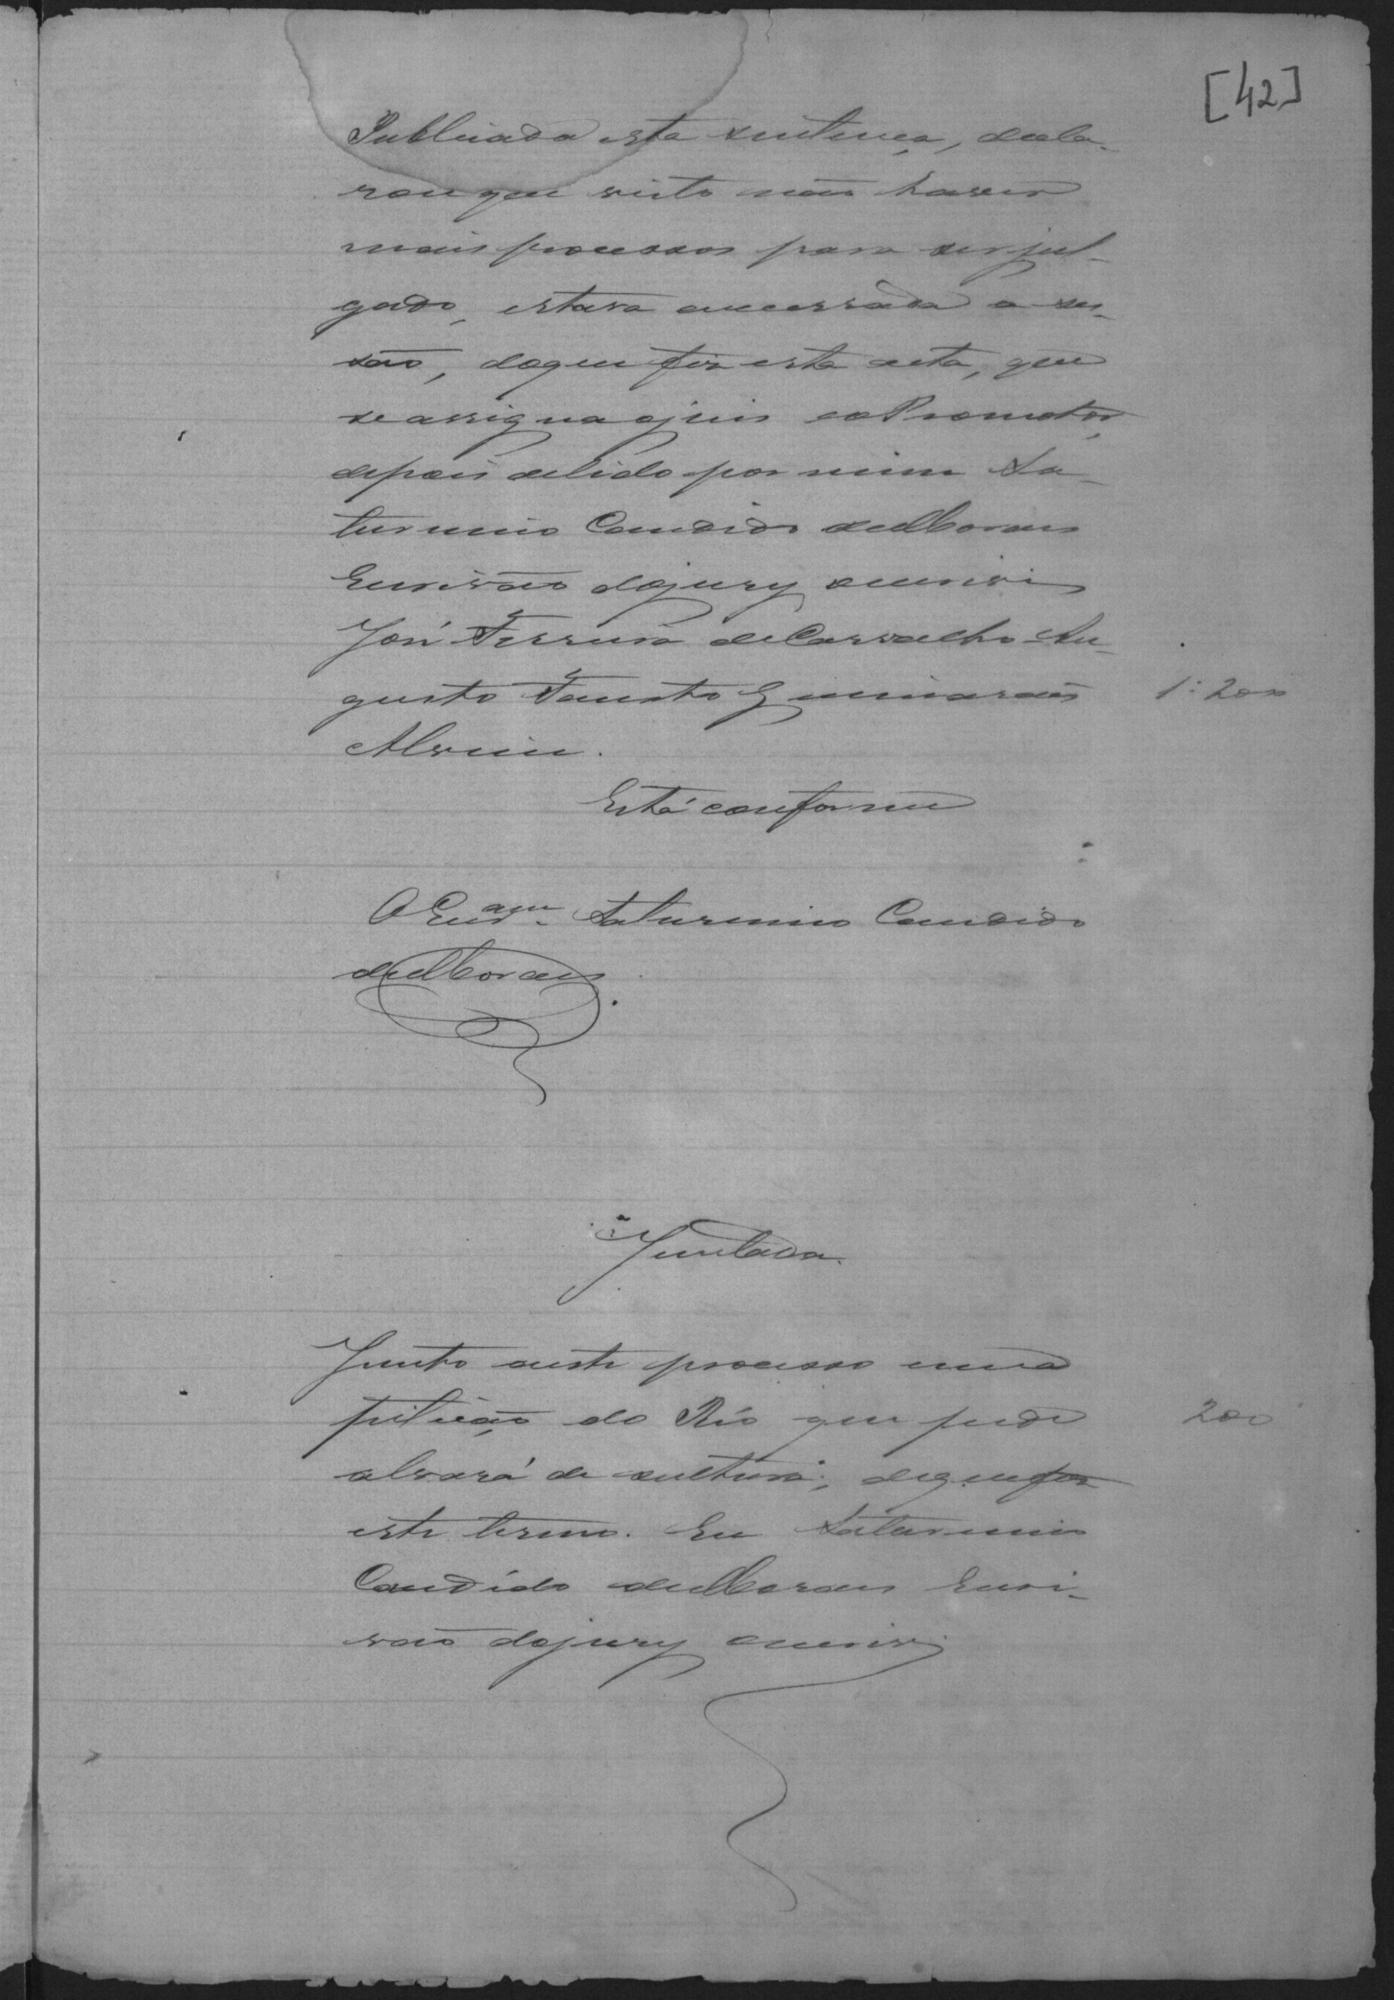 [42]
Publicada esta sentença, decla-
rou que visto não haver
mais processos para ser jul-
gado, estava encerrada a ses-
são, do que fiz esta acta, que
se assigna o juis e o Promotor,
depois de lido por mim Sa-
turnino Candido de Moraes
Escrivão do jury escrivi
José Ferreira de Carvalho Au-
gusto Fausto Guimarães 1:200
Alvim.
Está conforme
O Saturnino Candido
de Moraes.
Juntada.
Junto a este processo uma
petição do Réo que pede 200
alvará de soltura; do que fiz
este termo. Eu Saturnino
Candido de Moraes Escri-
vão do jury escrivi